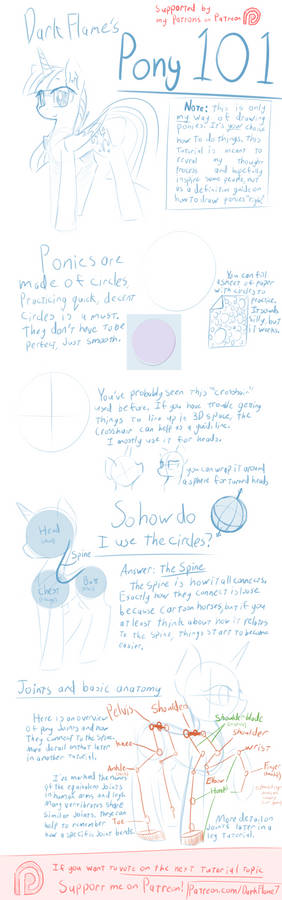 Supported by
my Patrons on Patreon
DarkFlame's
Pony 101
Note: This is only
my way of drawing
ponies. It's your choice
how to do things. This
tutorial is meant to
reveal my thought
process and hopefully
inspire some people, not
as a definitive guide on
how to draw ponies "right"
Ponies are
made of circles.
Practicing quick, decent
circles is a must.
They don't have to be
perfect, just smooth.
You can fill
a sheet of paper
with circles to
practice.
It sounds
silly, but
it works.
You've probably seen this "crosshair"
used before. If you have trouble getting
things to line up in 3D space, the
crosshair can help as a guide line.
I mostly use it for heads.
you can wrap it around
a sphere for turned heads
So how do
I use the circles?
Head
Spine
Chest
Butt
Answer: The Spine
The spine is how it all connects.
Exactly how they connect is loose
because cartoon horses, but if you
at least think about how it relates
to the spine, things start to become
easier.
Joints and basic anatomy
Here is an overview
of pony joints and how
they connect to the spine.
More detail on that later
in another tutorial.
I've marked the names
of the equivalent joints
in human arms and legs.
Many vertibrates share
similar joints. These can
help to remember
how a specific joint bends.
Pelvis
Shoulders
Knee
Ankle
Toe
Shoulder blade
shoulder
wrist
Elbow
Finger
More detail on
joints later in a
leg tutorial.
If you want to vote on the next tutorial topic
Support me on Patreon! /Patreon.com/DarkFlame7